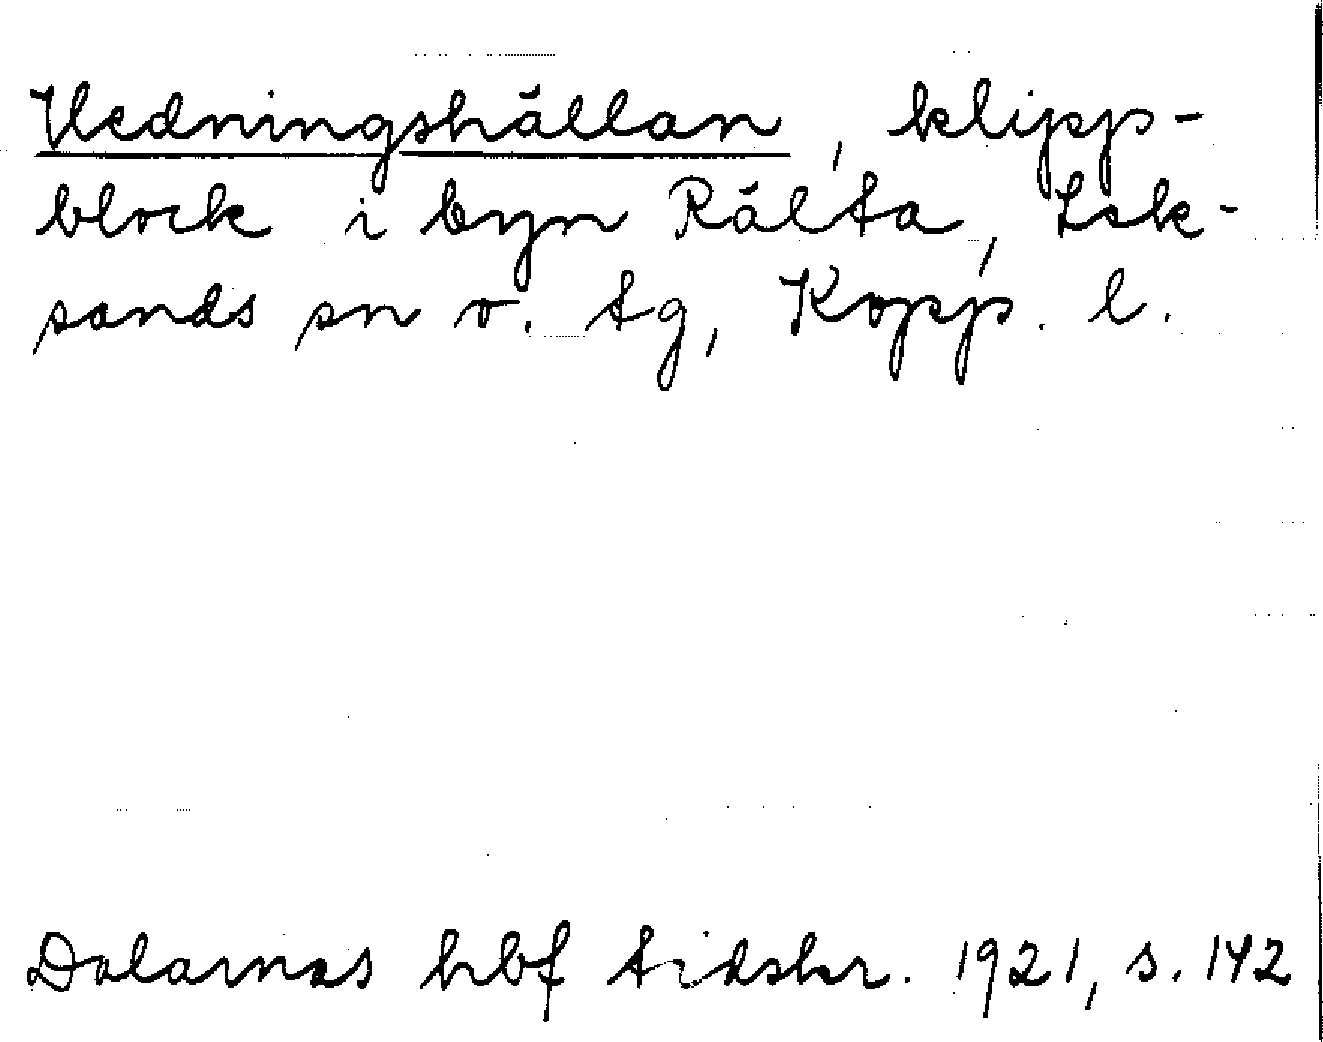 Vedningshällan, klipp-
block i byn Rälta, Lek-
sands sn o. tg, Kopp. l.
Dalarnas hbf tidskr. 1921, s. 142